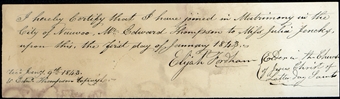 I hereby Certify that I have joined in Matrimony in the
City of Nauvoo, Mr. Edward Thompson to Miss Julia
upon this the first day of January 1843.
Elijah Fordham
of Jesus Christ of
Latter day Saints
9th 1843
Thompson